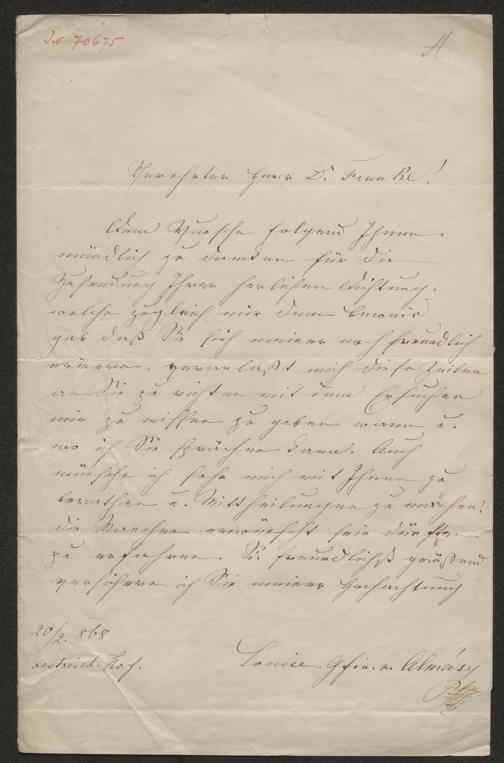 J.N. 70675
A.
Verehrter Herr Dr. Frankl!
Dem Wunsche folgend Ihnen
mündlich zu danken für die
Zusendung Ihrer herlichen Dichtung,
welche zugleich mir den Beweis
gab daß Sie sich meiner noch freundlich
erinnern, veranlaßt mich diese Zeilen
an Sie zu richten mit dem Ersuchen
mir zu wissen zu geben wann u.
wo ich Sie sprechen kann. Auch
wünsche ich sehr mich mit Ihnen zu
berathen u. Mittheilungen zu machen,
die Manchen erwünscht sein dürften
zu erfahren. Sie freundlichst grüßend
versichere ich Sie meiner Hochachtung
20/2. 868
oestreich. Hof.
Louise Gfin. v. Almásy